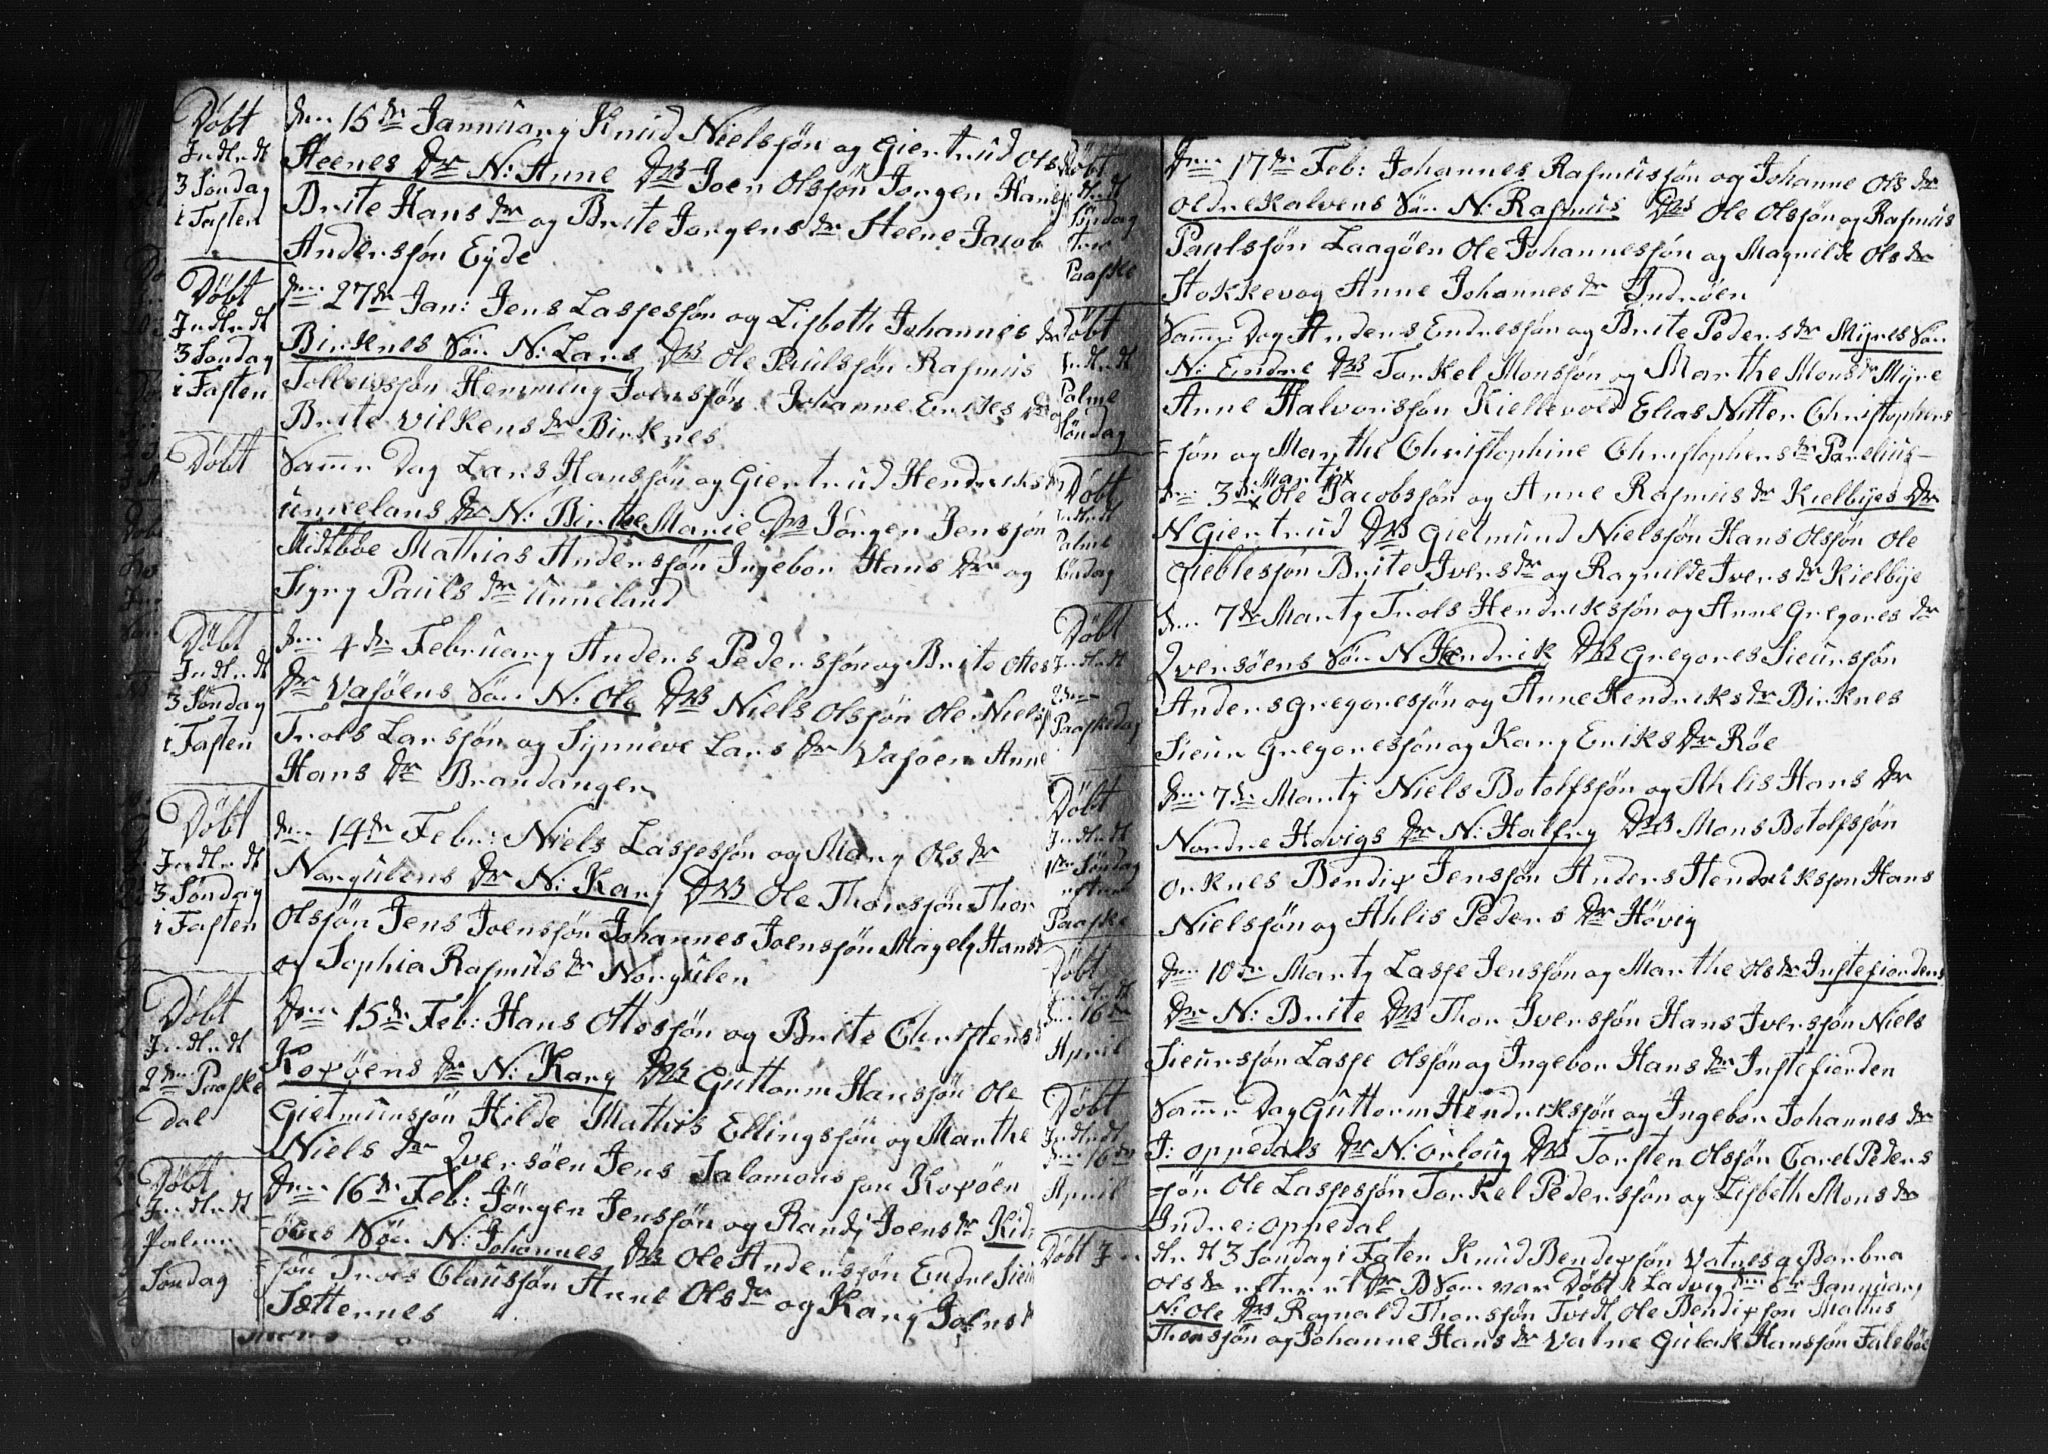 Døbt
Indledt
3 Søndag
i Fasten
den 15de Januarij Knud Nielsøn og Giertrud Ols
Steenes Dr N: Anne DB Joen Olssøn Jørgen Hans
Brite Hans dr og Brite Jørgens dr Steene Jacob
Andersøn Eyde
Døbt
Indledt
3 Søndag
i Fasten
den 27de Jan: Jens Lassesøn og Lisbeth Johannes dr
Birknes Søn N: Lars DB Ole Paulsøn Rasmus
Tollevsøn Hemming Joensøn Johanne Eriks Dr og
Brite Vilkens dr Birknes
Døbt
Samme Dag Lars Hansøn og Giertrud Hendriks dr
unnelans Dr N: Birthe Marie DB Jørgen Jensøn
Midtbøe Mathias Andersøn Ingebor Hans Dr og
Syny Pauls dr Unneland
Døbt
Indledt
3 Søndag
i Fasten
den 4de Februarij Anders Pedersøn og Brite Ottes
Dr Vasøens Søn N: Ole DB Niels Olssøn Ole Niels
Trols Larsøn og Synneve Lars Dr Vasøen Anne
Hans Dr Brandanger
Døbt
Indledt
3 Søndag
i Fasten
den 14de Febr: Niels Lassesøn og Mary Ols dr
Norgulens Dr N: Kary DB Ole Thorsøn Thor
Olsøn Jens Joensøn Johannes Joensøn Magely Hans
og Sophia Rasmus dr Norgulen
Døbt
Indledt
2den Paaske
dal
Den 15de Feb: Hans Ottesøn og Brite Christens
Koxøens dr N: Kary DB Guttorm Hansøn Ole
Gietmunsøn Hilde Mathis Ellingsøn og Marthe
Niels dr Qversøen Jens Salomonsøn Koxøen
Døbt
Indledt
Palme
Søndag
Den 16de Feb: Jørgen Jensøn og Randj Joens dr Kid
øens Søn N: Johannes DB Ole Andersøn Endre Sieur
søn Trols Clausøn Anne Ols dr og Kary Joens
Sætternes
Døbt
Indledt
Søndag
etter
Paaske
Den 17de Feb: Johannes Rasmusøn og Johanne Ols dr
oldrekalvens Søn N: Rasmus DB Ole Olsøn og Rasmus
Paulsøn Laagøen Ole Johannesøn og Magnilde Ols dr
Stokkevog Anne Johannes dr Indrøen
Døbt
Indledt
Palme
Søndag
Samme Dag Anders Endresøn og Brite Peders dr Myres Søn
N: Eindre DB Torkel Monsøn og Marthe Mons dr Myre
Anne Halvorsøn Kiellevold Elias Nitter Christophers
søn og Marthe Christophine Christophers dr Parelius
Døbt
Indledt
Palme
Søndag
den 3de Martij Ole Jacobsøn og Anne Rasmus dr Kielbyes Dr
N Giertrud DB Gietmund Nielsøn Hans Olsøn Ole
Gieblesøn Brite Ivers dr og Ragnilde Ivers dr Kielbye
Døbt
Indledt
2den
Paaskedag
den 7de Marty Trols Hendriksøn og Anne Gregores dr
Qversøens Søn N Hendrik DB Gregores Sieursøn
Anders Gregoresøn og Anne Hendriks dr Birknes
Sieur Gregoresøn og Kary Eriks Dr Røe
Døbt
Indledt
1ste Søndag
efter
Paaske
den 7de Martij Niels Botolfsøn og Ahlis Hans dr
Nordre Høvigs Dr N: Halfry DB Mons Botolfsøn
Orknes Bendix Jensøn Anders Hendriksøn Hans
Nielsøn og Ahlis Peders Dr Høvig
Døbt
Indledt
den 16de
April
den 10de Marty Lasse Jensøn og Marthe Ols dr Instefiordens
Dr N: Brite DB Thor Iversøn Hans Iversøn Niels
Sieursøn Lasse Olsøn og Ingebor Hans dr Instefiorden
Døbt
Indledt
den 16de
April
Samme Dag Guttorm Hendriksøn og Ingebor Johannes dr
I: oppedals dr N: Orloug DB Torsten Olsøn Carel Peders
søn Ole Lassesøn Torkel Pedersøn og Lisbeth Mons dr
Indre: oppedal
Døbt In dledt 3 Søndag i Fasten Knud Bendixsøn Vatnes og Barbra
Ols dr var Døbt i Ladvig den 6te Januarij
N: Ole DB Ragnald Thorsøn Tvedt Ole Bendixsøn Mathis
Thorsøn og Johanne Hans dr Vatne Gulak Hansøn Falebøe